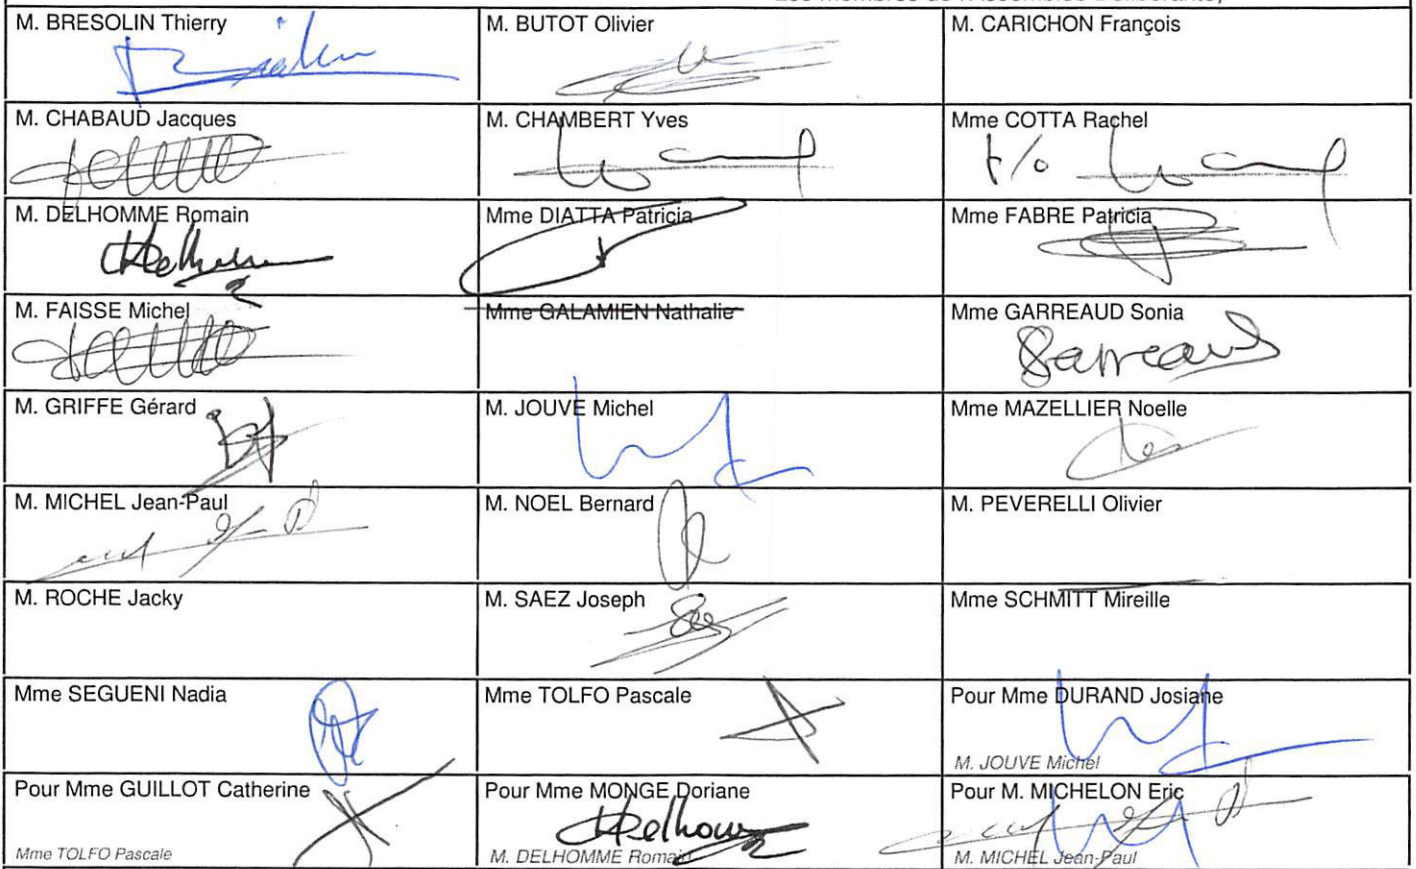 Les membres de l'Assemblée Délibérante,
M. BRESOLIN Thierry
M. BUTOT Olivier
M. CARICHON François
M. CHABAUD Jacques
M. CHAMBERT Yves
Mme COTTA Rachel
M. DELHOMME Romain
Mme DIATTA Patricia
Mme FABRE Patricia
M. FAISSE Michel
Mme GALAMIEN Nathalie
Mme GARREAUD Sonia
Garreaud
M. GRIFFE Gérard
M. JOUVE Michel
Mme MAZELLIER Noelle
M. MICHEL Jean-Paul
M. NOEL Bernard
M. PEVERELLI Olivier
M. ROCHE Jacky
M. SAEZ Joseph
Mme SCHMITT Mireille
Mme SEGUENI Nadia
Mme TOLFO Pascale
Pour Mme DURAND Josiane
M. JOUVE Michel
Pour Mme GUILLOT Catherine
Mme TOLFO Pascale
Pour Mme MONGE Doriane
M. DELHOMME Romain
Pour M. MICHELON Eric
M. MICHEL Jean-Paul